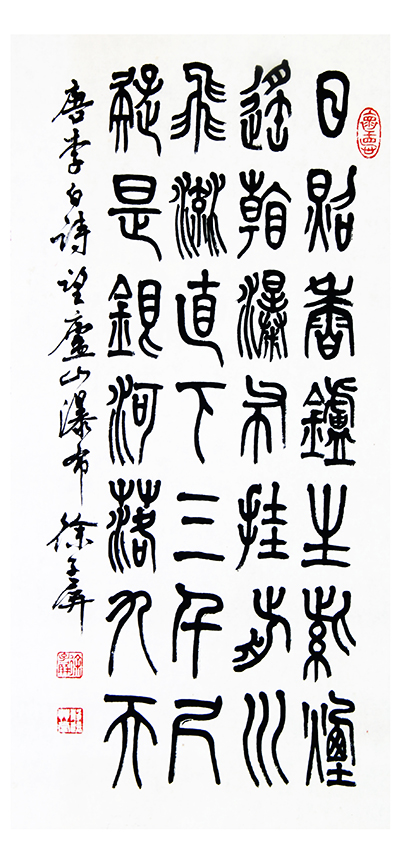 日照香鑪生紫煙
遙看瀑布挂前川
飛流直下三千尺
疑是銀河落九天
唐李白詩望廬山瀑布 徐子屏